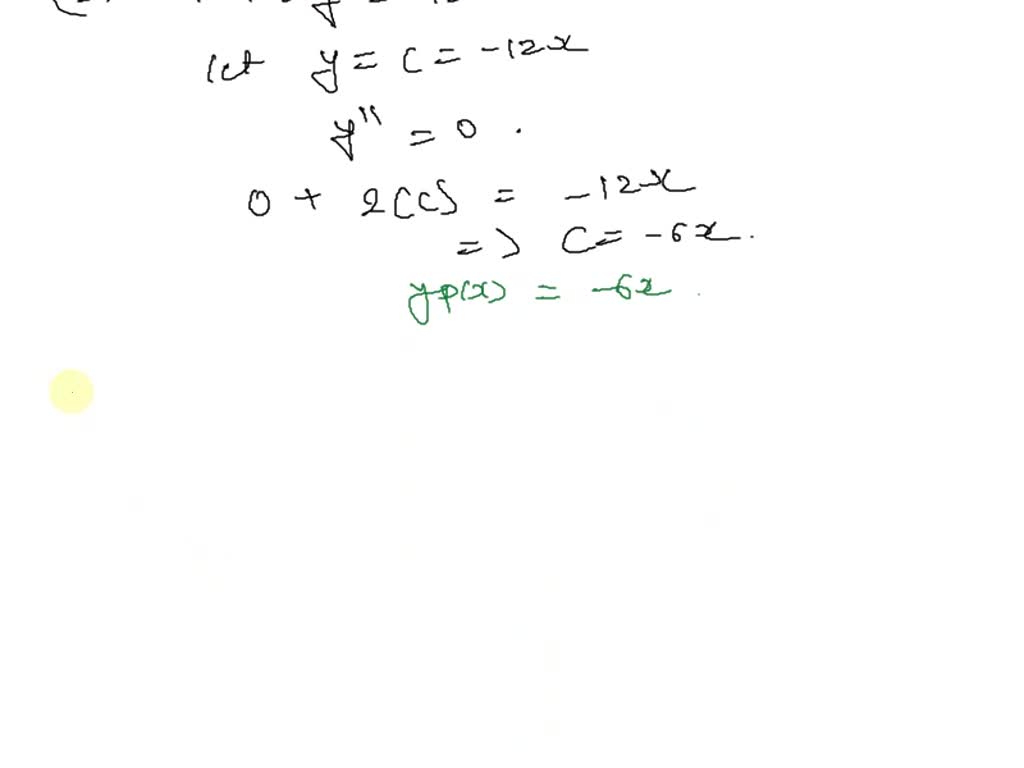 let y = c = -12x
y" = 0 .
0 + 2(c) = -12x
=> C = -6x .
yp(x) = -6x .